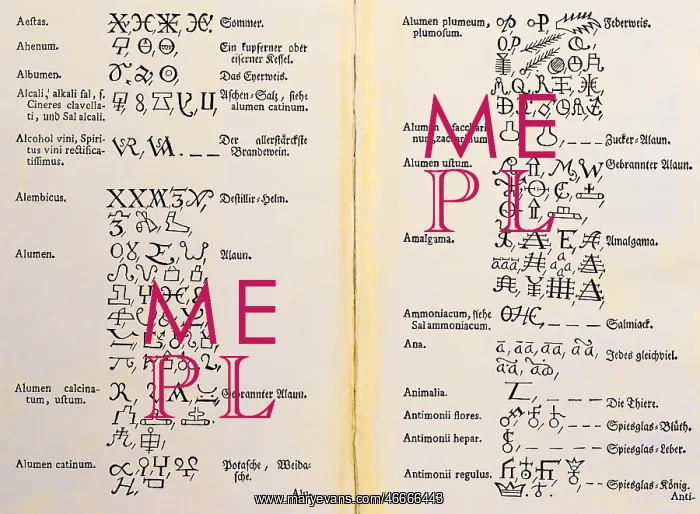 Aestas.
Sommer.
Ahenum.
Ein kupferner oder
eiserner Kessel.
Albumen.
Das Eyerweis.
Alcali, alkali sal, s.
Cineres clavella-
ti, und Sal alcali.
Aschen-Saltz, siehe
alumen catinum.
Alcohol vini, Spiri-
tus vini rectifica-
tissimus.
Der allerstärckste
Brandewein.
Alembicus.
Destillir-Helm.
Alumen.
Alaun.
Alumen calcina-
tum, ustum.
Gebrannter Alaun.
Alumen catinum.
Potasche, Weida-
sche.
Alu-
Alumen plumeum,
plumosum.
Federweis.
Alumen sacchari-
num, zaccharinum
Zucker-Alaun.
Alumen ustum.
Gebrannter Alaun.
Amalgama.
Amalgama.
Ammoniacum, siehe
Sal ammoniacum.
Salmiack.
Ana.
Jedes gleichviel.
Animalia.
Die Thiere.
Antimonii flores.
Spiesglas-Blüth.
Antimonii hepar.
Spiesglas-Leber.
Antimonii regulus.
Spiesglas-König.
Anti-
ME
PL
ME
PL
www.maryevans.com/46666443